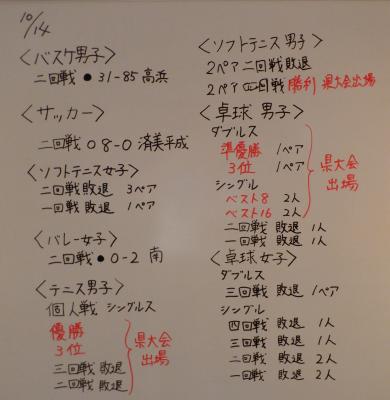 10/14
<バスケ男子>
二回戦 ● 31-85 高浜
<サッカー>
二回戦 ○ 8-0 済美平成
<ソフトテニス女子>
二回戦 敗退 3ペア
一回戦 敗退 1ペア
<バレー女子>
二回戦 ● 0-2 南
<テニス男子>
個人戦 シングルス
優勝
3位
県大会出場
三回戦 敗退
二回戦 敗退
<ソフトテニス 男子>
2ペア 二回戦敗退
2ペア 四回戦 勝利 県大会出場
<卓球 男子>
ダブルス
準優勝 1ペア
3位 1ペア
シングル
ベスト8 2人
ベスト16 2人
県大会
出場
二回戦 敗退 1人
一回戦 敗退 1人
<卓球 女子>
ダブルス
三回戦 敗退 1ペア
シングル
四回戦 敗退 1人
三回戦 敗退 1人
二回戦 敗退 2人
一回戦 敗退 2人